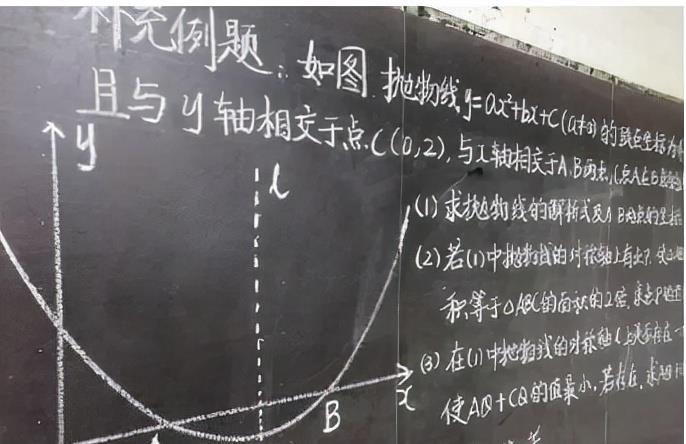 补充例题:如图 抛物线y=ax²+bx+c(a≠0)的顶点坐标为
且与y轴相交于点C(0,2),与x轴相交于A、B两点(点A在B
(1)求抛物线的解析式及A B两点的坐标
(2)若(1)中抛物线的对称轴上有点P,
积等于△ABC的面积的2倍,求点P
(3)在(1)中抛物线的对称轴l上是否存在一
使AQ+CQ的值最小,若存在,求AQ
y
l
x
B